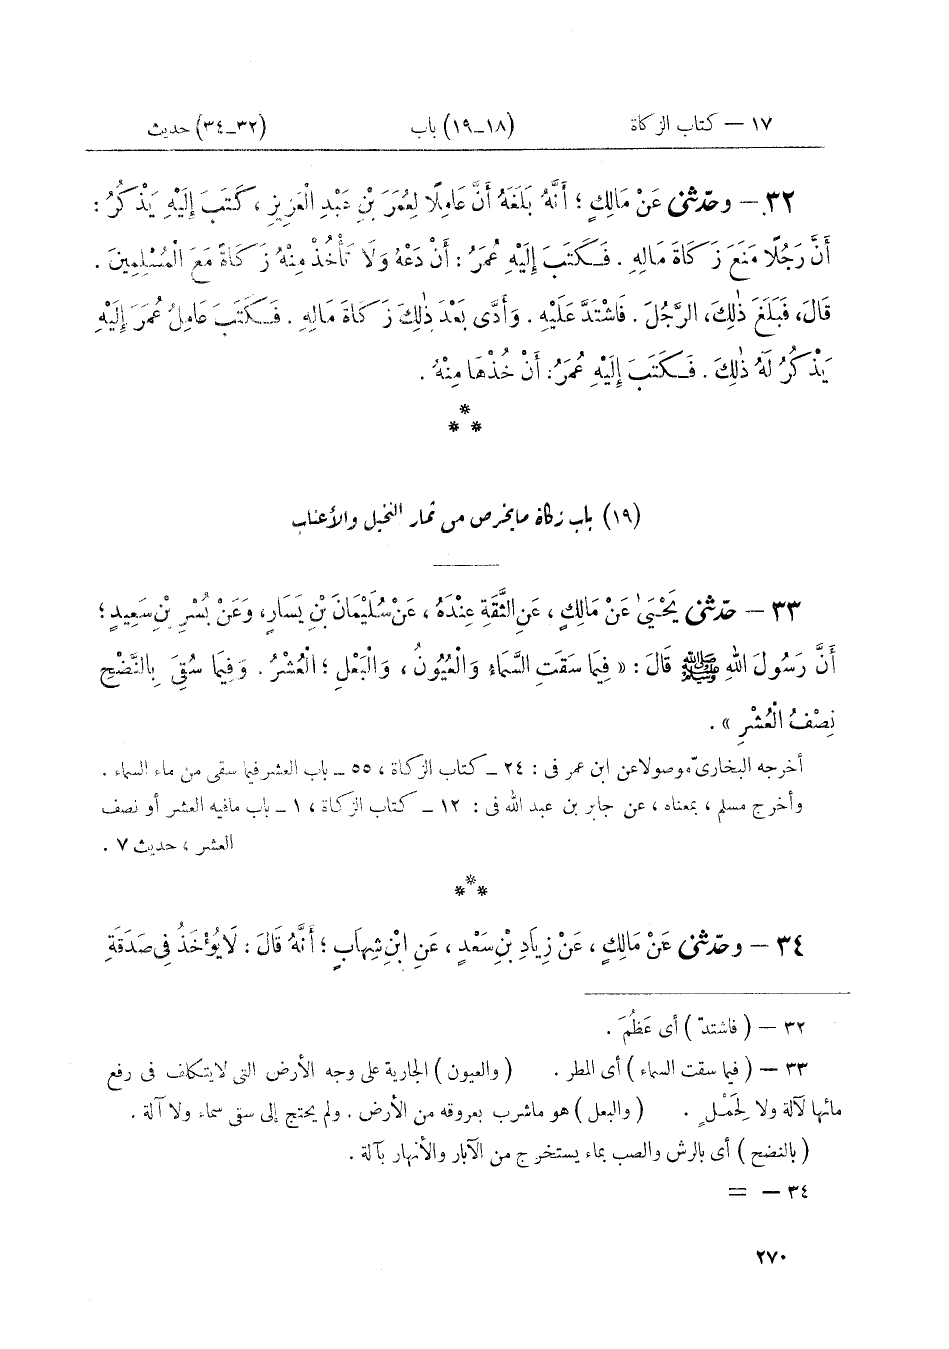 ١٧ — كتاب الزكاة (١٨_١٩) باب (٣٢_٣٤) حديث
٣٢ — وحدّثنى عَنْ مَالِكٍ ؛ أَنَّهُ بَلَغَهُ أَنَّ عَامِلًا لِعُمَرَ بْنِ عَبْدِ الْعَزِيزِ ، كَتَبَ إِلَيْهِ يَذْكُرُ :
أَنَّ رَجُلًا مَنَعَ زَكَاةَ مَالِهِ . فَكَتَبَ إِلَيْهِ عُمَرُ : أَنْ دَعْهُ وَلَا تَأْخُذْ مِنْهُ زَكَاةً مَعَ الْمُسْلِمِينَ .
قَالَ، فَبَلَغَ ذٰلِكَ، الرَّجُلَ . فَاشْتَدَّ عَلَيْهِ . وَأَدَّى بَعْدَ ذٰلِكَ زَكَاةَ مَالِهِ . فَكَتَبَ عَامِلُ عُمَرَ إِلَيْهِ
يَذْكُرُ لَهُ ذٰلِكَ . فَكَتَبَ إِلَيْهِ عُمَرُ: أَنْ خُذْهَا مِنْهُ .
*
* *
(١٩) باب زكاة مايخرص من ثمار النخيل والأعناب
٣٣ — حدّثنى يَحْيَىٰ عَنْ مَالِكٍ ، عَنِ الثِّقَةِ عِنْدَهُ ، عَنْ سُلَيْمَانَ بْنِ يَسَارٍ، وَعَنْ بُسْرِ بْنِ سَعِيدٍ ؛
أَنَّ رَسُولَ اللهِ ﷺ قَالَ : « فِيمَا سَقَتِ السَّمَاءِ وَالْعُيُونُ ، وَالْبَعْلِ ؛ الْعُشْرُ . وَفِيمَا سُقِىَ بِالنَّضْحِ
نِصْفُ الْعُشْرِ » .
أخرجه البخارىّ موصولا عن ابن عمر فى : ٢٤ _ كتاب الزكاة ، ٥٥ _ باب العشر فيما سقى من ماء السماء .
وأخرج مسلم ، بمعناه ، عن جابر بن عبد الله فى : ١٢ _ كتاب الزكاة ، ١ _ باب مافيه العشر أو نصف
العشر ، حديث ٧ .
*
* *
٣٤ — وحدّثنى عَنْ مَالِكٍ ، عَنْ زِيَادِ بْنِ سَعْدٍ ، عَنِ ابْنِ شِهَابٍ ؛ أَنَّهُ قَالَ : لَا يُؤْخَذُ فِى صَدَقَةِ
٣٢ — ( فاشتدّ ) أى عَظُمَ .
٣٣ — ( فيما سقت السماء ) أى المطر . ( والعيون ) الجارية على وجه الأرض التى لايتكلف فى رفع
مائها لآلة ولا لِحَمْلٍ . ( والبعل ) هو ماشرب بعروقه من الأرض . ولم يحتج إلى سقى سماء ولا آلة .
( بالنضح ) أى بالرش والصب بماء يستخرج من الآبار والأنهار بآلة .
٣٤ — =
٢٧٠